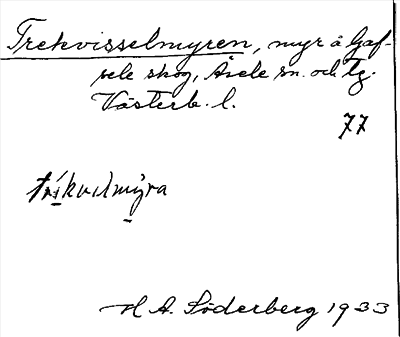 Trekvisselmyren, myr å Gaf-
sele skog, Åsele sn. och tg.
Västerb. l.
77
trikvislmyra
H A. Söderberg 1933